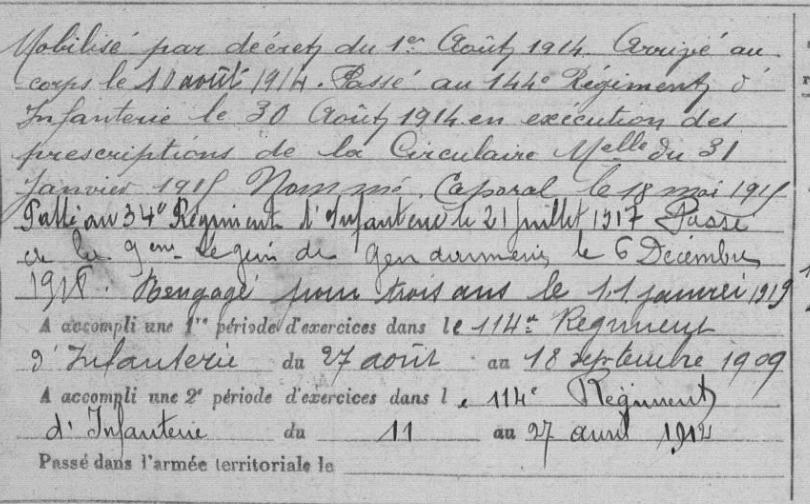 Mobilisé par décret du 1er Août 1914. Arrivé au
corps le 10 août 1914. Passé au 144e Régiment d'
Infanterie le 30 Août 1914 en exécution des
prescriptions de la Circulaire Melle du 31
Janvier 1915 Nommé Caporal le 18 mai 1915
Passé au 34e Régiment d'Infanterie le 21 juillet 1917 Passé
à la 9eme Légion de gendarmerie le 6 Décembre
1918. Rengagé pour trois ans le 11 janvier 1919
A accompli une 1re période d'exercices dans le 114e Régiment
d'Infanterie du 27 août au 18 septembre 1909
A accompli une 2e période d'exercices dans le 114e Régiment
d'Infanterie du 11 au 27 avril 1912
Passé dans l'armée territoriale le